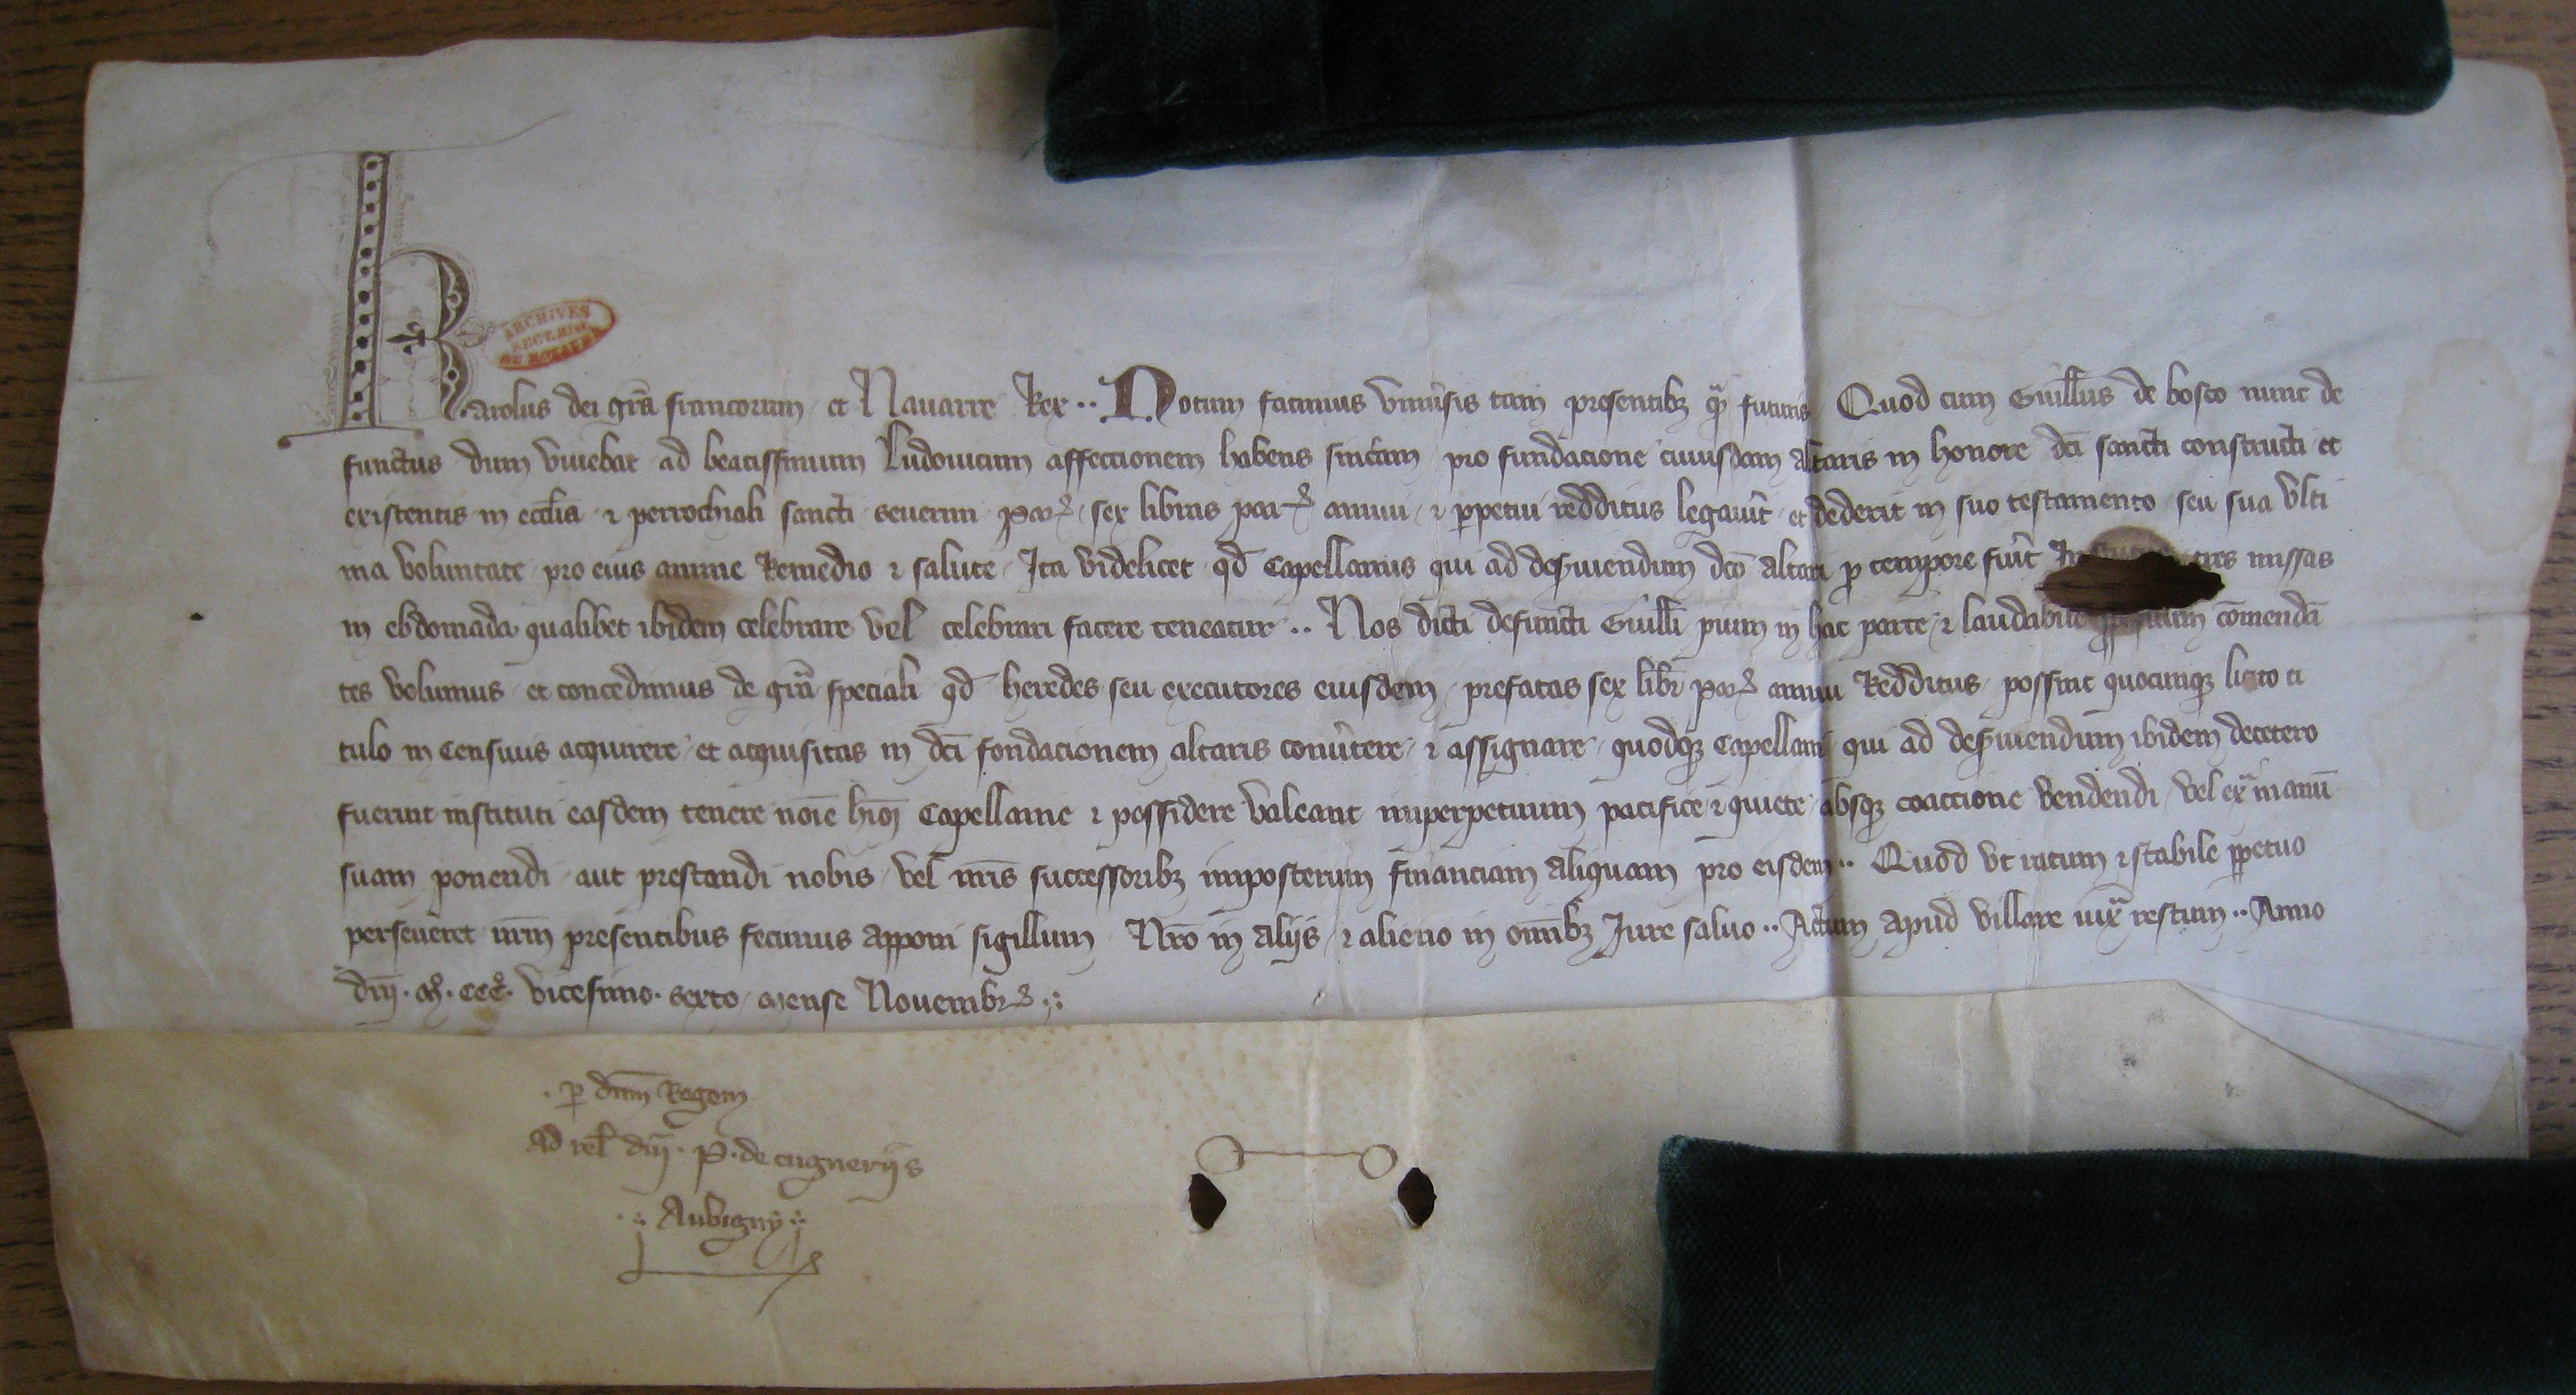 Karolus dei gr̃a francorum et Nauarre Rex ·· Notum facimus vniu̾sis tam presentibꝫ qͣ̃ futuris Quod cum Guill̃us de bosco nunc de
functus dum viuebat ad beatissimum Ludouicum affeccionem habens sinc̾am pro fundacione cuiusdam altaris in honore dc̃i sancti constructi et
existentis in eccl̃ia ⁊ perrochiali sancti seuerini par̃ sex libras par̃ annui ⁊ ꝑpetui redditus legau̾it et dederit in suo testamento seu sua vlti
ma voluntate pro eius anime Remedio ⁊ salute Ita videlicet qd̃ Capellanus qui ad des̾uiendum dc̃o altari ꝓ tempore fu̾it tres missas
in ebdomada qualibet ibidem celebrare vel celebrari facere teneatur ·· Nos dicti defuncti Guill̃i pium in hac parte ⁊ laudabile ꝓpositum co̅menda̅
tes volumus et concedimus de gr̃a speciali qd̃ heredes seu executores eiusdem prefatas sex libr̃ par̃ annui Redditus possint quocunqꝫ licito ti
tulo in Censiuis acquirere et acquisitas in dc̃i fondacionem altaris conu̾tere ⁊ assignare quodqꝫ Capellani qui ad des̾uiendum ibidem decetero
fuerint instituti easdem tenere noĩe hi̾oꝫ Capellanie ⁊ possidere valeant imperpetuum pacifice ⁊ quiete absqꝫ coaccione vendendi vel exͣ manu̅
suam ponendi aut prestandi nobis vel nr̃is successoribꝫ imposterum financiam aliquam pro eisdem ·· Quod vt ratum ⁊ stabile ꝑpetuo
perseueret nr̃m presentibus fecimus apponi sigillum Nr̃o in aliis ⁊ alieno in om̃ibꝫ Iure saluo ·· Actum apud villare iuxͣ restum ·· Anno
dñi · mͦ · cccͦ · vicesimo · sexto mense Nouembr̃ ·:
· ꝑ dñm Regem
Ad rel̃ dñi · P · de cugneriis
·: Aubigny :·
ARCHIVES